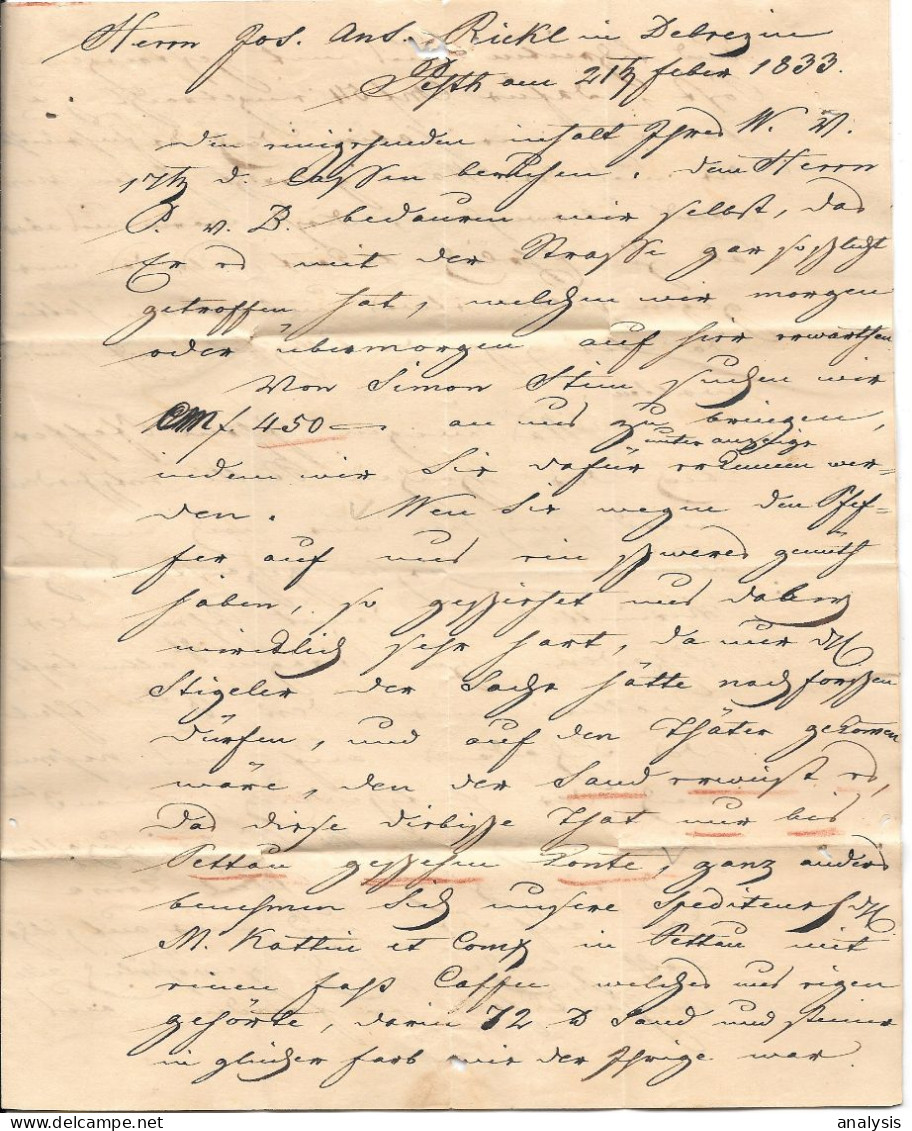 Herrn Jos. Ant. Rickl in Debrezin
Pesth am 21t feber 1833.
Den eingehenden inhalt Ihres W. V.
17t d. lassen beruhen. Den Herrn
P. v. B. bedauren wir selbst, das
Er es mit der Strasse gar so schlecht
getroffen hat, welchen wir morgen
oder übermorgen auf hier erwarthen
Von Simon Stein suchen wir
CMf 450 an uns zu bringen,
unter anzeige
indem wir Sie dafür erkennen wer=
den. Wen Sie wegen den Pfef=
fer auf uns ein schweres gemüth
haben, so geschiehet uns dabey
wircklich sehr hart, da nur
Stigeler der Sache hätte nachforschen
dürfen, und auf den Thäter gekomen
wäre, den der Sand erweist es,
Das diese diebische That nur bis
Pettau geschehen konte, ganz anders
benehmen Sich unsere Spediteurs
M. Kattin et Comp in Pettau mit
einen fass Caffee welches uns eigen
gehörte, darin 72 Sand und steiner
in gleicher farb wie der Ihrige war
analysis